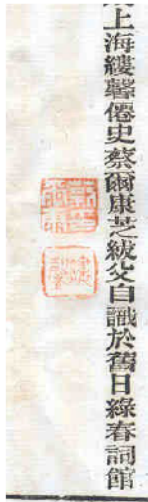 上海縷馨僊史蔡爾康芝紱父自識於舊日綠春詞館